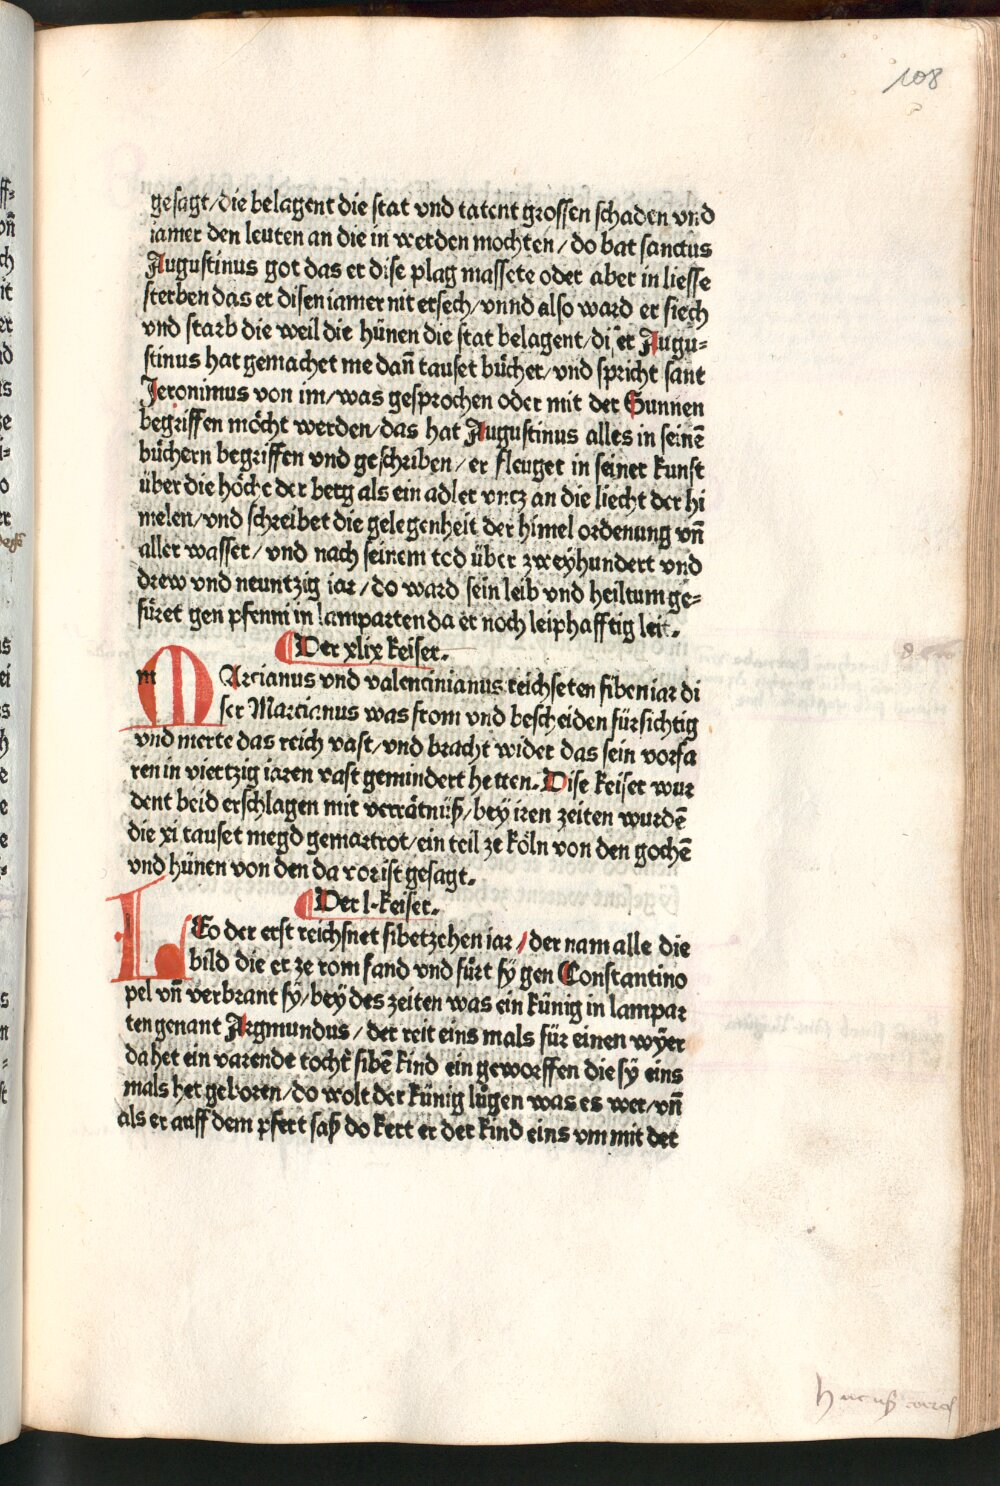 108
gesagt/die belagent die stat vnd tatent grossen schaden vnd
iamer den leuten an die in werden mochten/do bat sanctus
Augustinus got das er dise plag massete oder aber in liesse
sterben das er disen iamer nit ersech/vnnd also ward er siech
vnd starb die weil die hünen die stat belagent/diser Augu=
stinus hat gemachet me dañ tauset bücher/vnd spricht sant
Jeronimus von im/was gesprochen oder mit der Sunnen
begriffen möcht werden/das hat Augustinus alles in seinē
büchern begriffen vnd geschriben/er fleuget in seiner kunst
über die höche der berg als ein adler vntz an die liecht der hi
melen/vnd schreibet die gelegenheit der himel ordenung vñ
aller wasser/vnd nach seinem tod über zweyhundert vnd
drew vnd neuntzig iar/do ward sein leib vnd heiltum ge=
füret gen pfenni in lamparten da er noch leiphafftig leit.
Der xlix keiser.
m
MArcianus vnd valencinianus reichseten siben iar di
ser Marcianus was from vnd bescheiden fürsichtig
vnd merte das reich vast/vnd bracht wider das sein vorfa
ren in viertzig iaren vast gemindert hetten. Dise keiser wur
dent beid erschlagen mit verrätnüß/bey iren zeiten wurdē
die xi tauset megd gemartrot/ein teil ze köln von den gochē
vnd hünen von den da vor ist gesagt.
Der l. keiser.
LEo der erst reichsnet sibetzehen iar/der nam alle die
bild die er ze rom fand vnd fürt sÿ gen Constantino
pel vñ verbrant sÿ/beÿ des zeiten was ein künig in lampar
ten genant Argmundus/der reit eins mals für einen wÿer
da het ein varende tocht̄ sibē kind ein geworffen die sÿ eins
mals het geboren/do wolt der künig lůgen was es wer/vñ
als er auff dem pfert saß do kert er der kind eins vm mit der